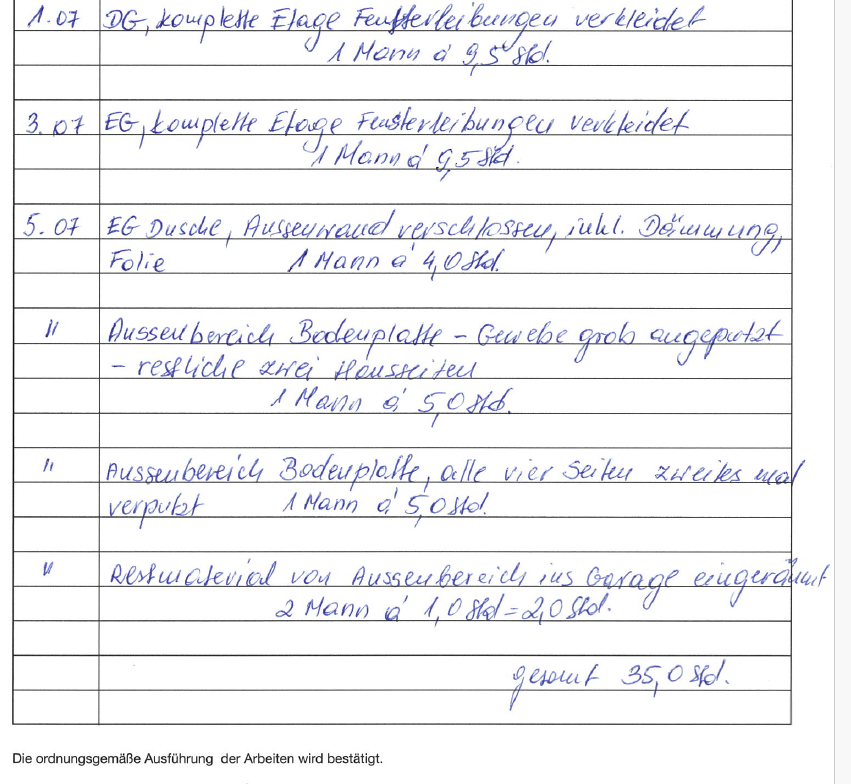 1.07 DG, komplette Etage Fensterleibungen verkleidet
1 Mann á 9,5 Std.
3.07 EG, komplette Etage Fensterleibungen verkleidet
1 Mann á 9,5 Std.
5.07 EG Dusche, Aussenwand verschlossen, inkl. Dämmung,
Folie 1 Mann á 4,0 Std.
" Aussenbereich Bodenplatte - Gewebe grob angeputzt
- restliche zwei Hausseiten
1 Mann á 5,0 Std.
" Aussenbereich Bodenplatte, alle vier Seiten zweites mal
verputzt 1 Mann á 5,0 Std.
" Restmaterial von Aussenbereich ins Garage eingeräumt
2 Mann á 1,0 Std = 2,0 Std.
gesamt 35,0 Std.
Die ordnungsgemäße Ausführung der Arbeiten wird bestätigt.